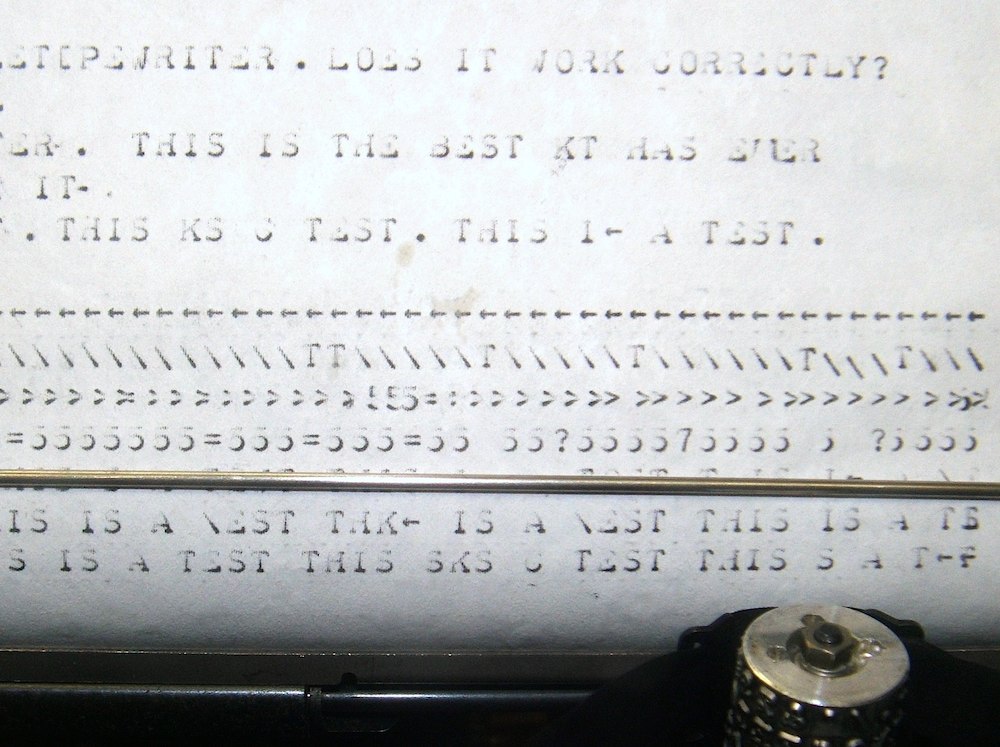 ETCPEWRITER. LOES IT WORK CORRECTLY?
.
TER-. THIS IS THE BEST KT HAS EVER
IT-.
. THIS KS C TEST. THIS I← A TEST.
←←←←←←←←←←←←←←←←←←←←←←←←←←←←←←←←←←←←←←←←
\\\\\\\\\\\\TT\\\\\T\\\\\T\\\\\\T\\\T\\\
=5555555=555=555=55 55?555575555 5 ?5555
HIS IS A \EST THK← IS A \EST THIS IS A TE
S IS A TEST THIS SKS C TEST THIS S A T←F